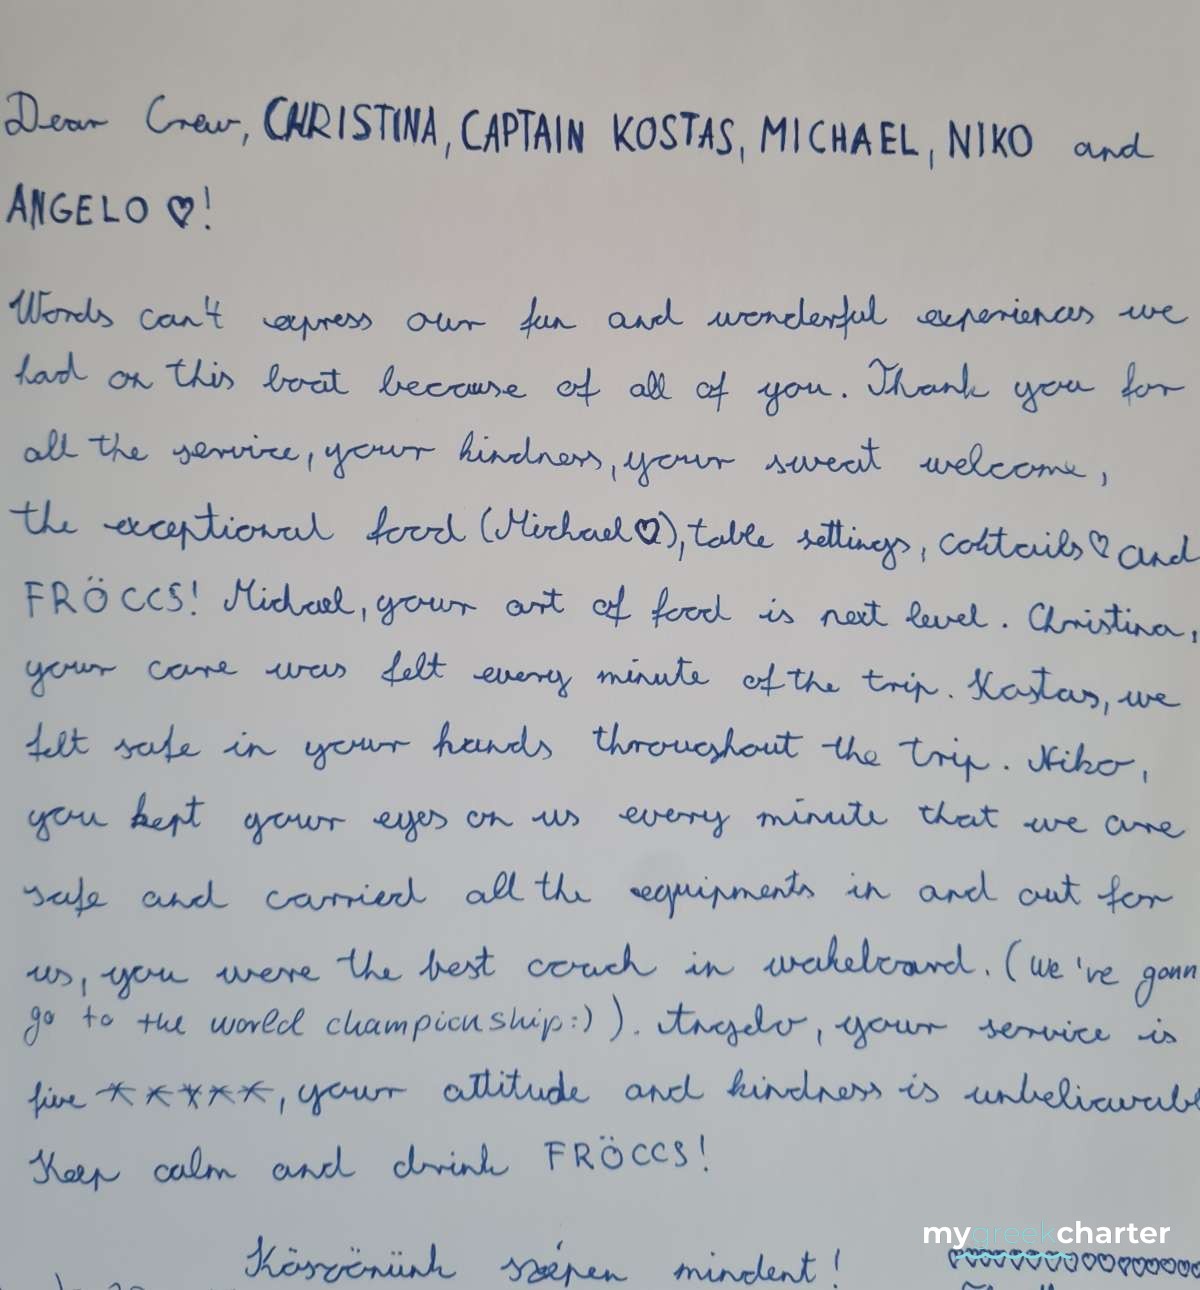 Dear Crew, CHRISTINA, CAPTAIN KOSTAS, MICHAEL, NIKO and
ANGELO ♡!
Words can't express our fun and wonderful experiences we
had on this boat because of all of you. Thank you for
all the service, your kindness, your sweat welcome,
the exceptional food (Michael♡), table settings, coktails♡ and
FRÖCCS! Michael, your art of food is next level. Christina,
your care was felt every minute of the trip. Kostas, we
felt safe in your hands throughout the trip. Niko,
you kept your eyes on us every minute that we are
safe and carried all the equipments in and out for
us, you were the best coach in wakeboard. (We've gonn
go to the world championship:)). Angelo, your service is
five *****, your attitude and kindness is unbeliavabl
Keep calm and drink FRÖCCS!
mygreekcharter
Köszönünk szépen mindent! ♡♡♡♡♡♡♡♡♡♡♡♡♡♡♡